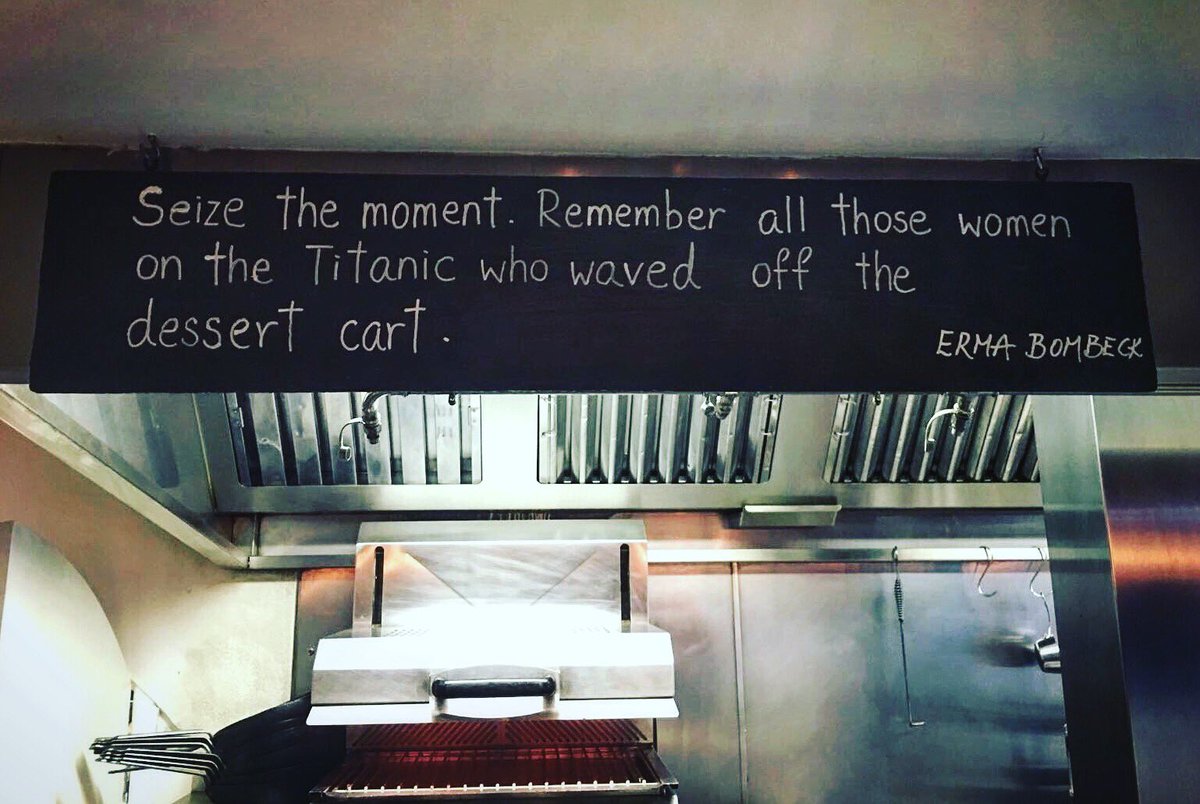 Seize the moment. Remember all those women
on the Titanic who waved off the
dessert cart.
ERMA BOMBECK